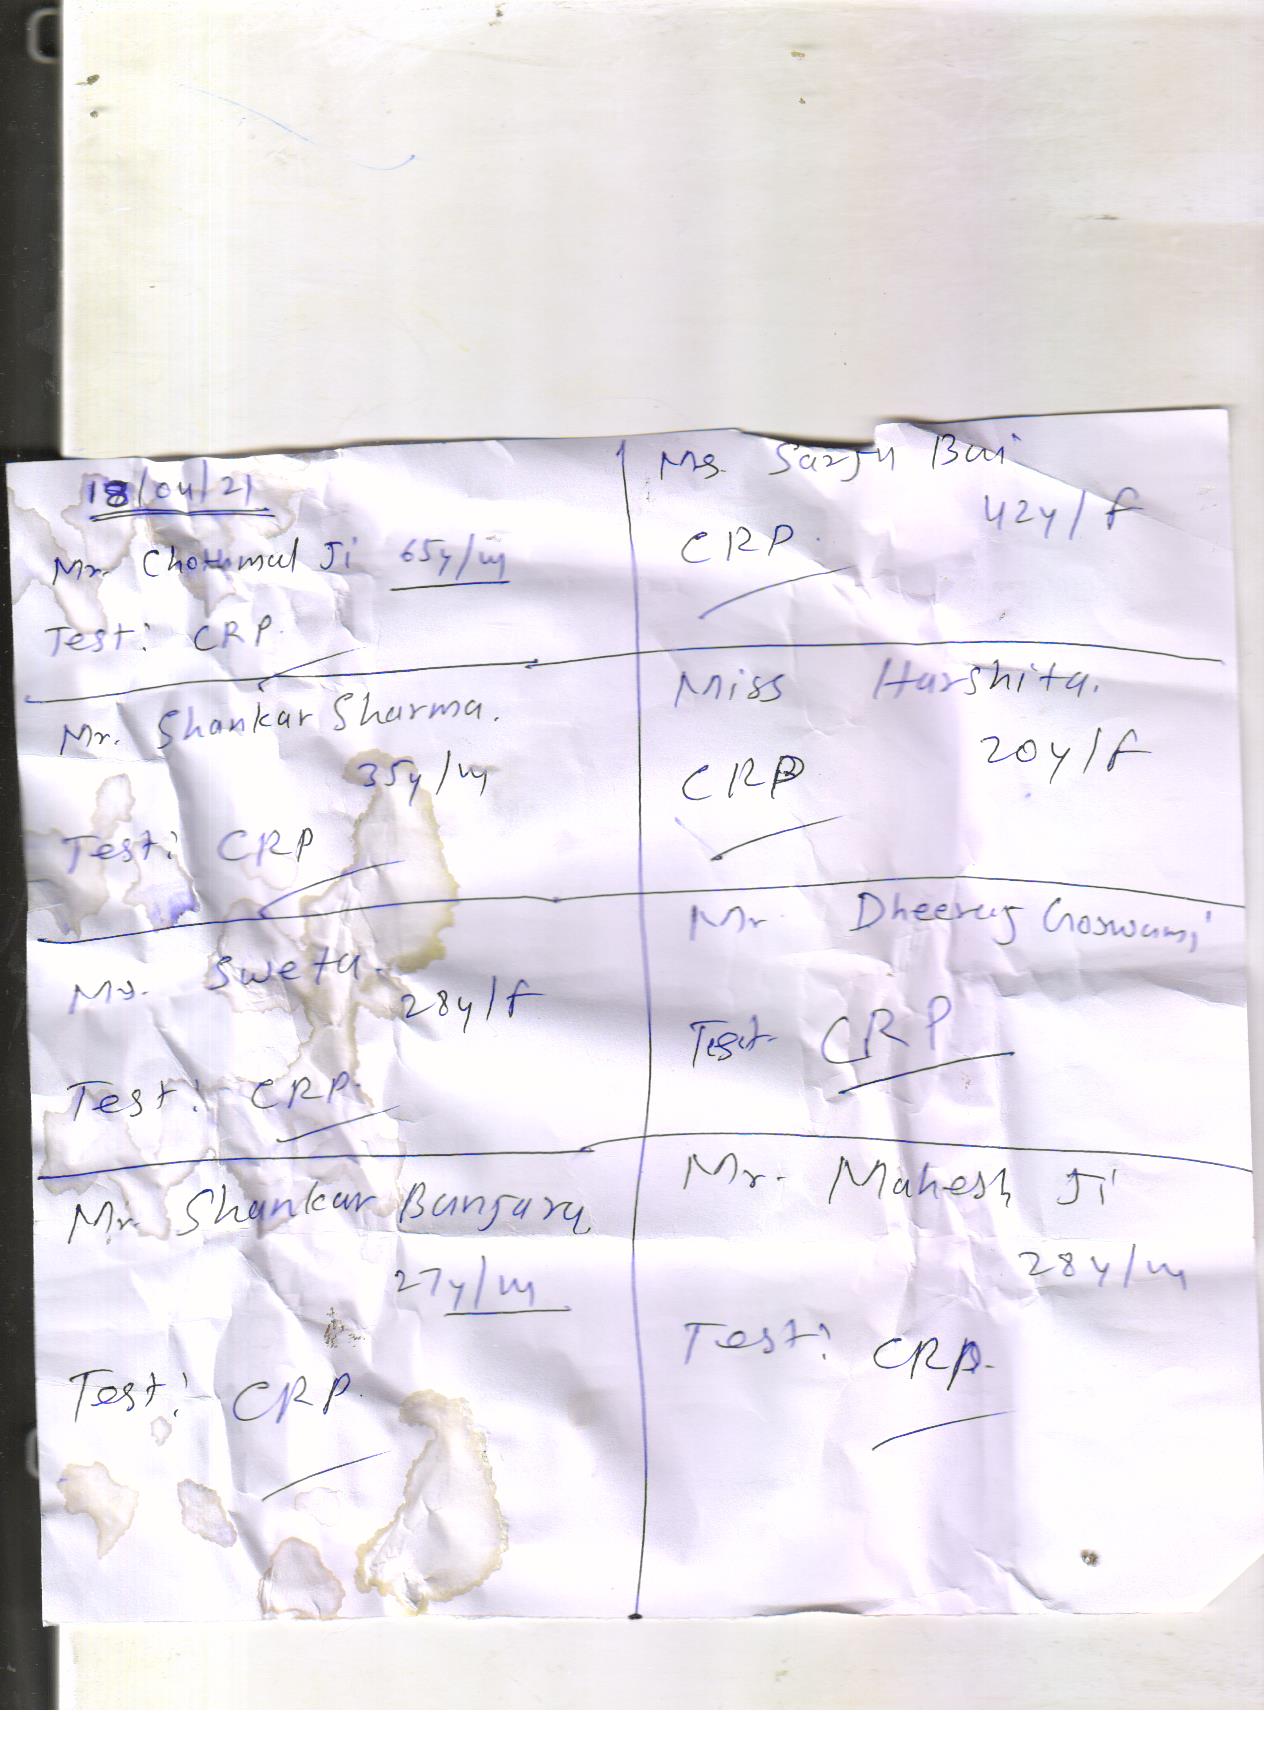 18/04/21
Mr. Chothmal Ji 65y/m
Test: CRP.
Mr. Shankar Sharma.
35y/m
Test: CRP
Ms. Sweta.
28y/f
Test: CRP.
Mr. Shankar Banjara
27y/m
Test: CRP.
Ms. Sarju Bai
42y/f
CRP.
Miss Harshita.
20y/f
CRP
Mr. Dheeraj Goswami
Test CRP
Mr. Mahesh Ji
28y/m
Test: CRP.